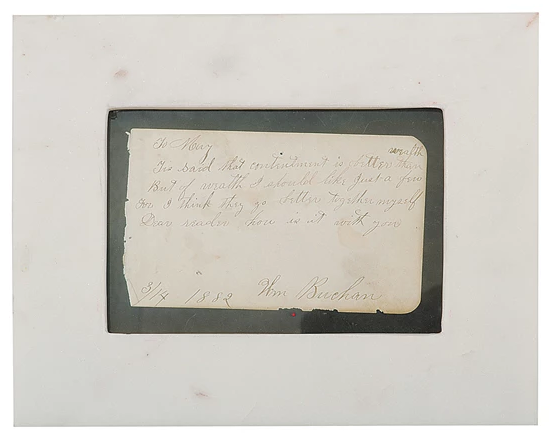 To May
Tis said that contentment is better than wealth
But of wealth I should like just a few
For I think they go better together myself
Dear reader how is it with you
3/14 1882 Wm Buchan